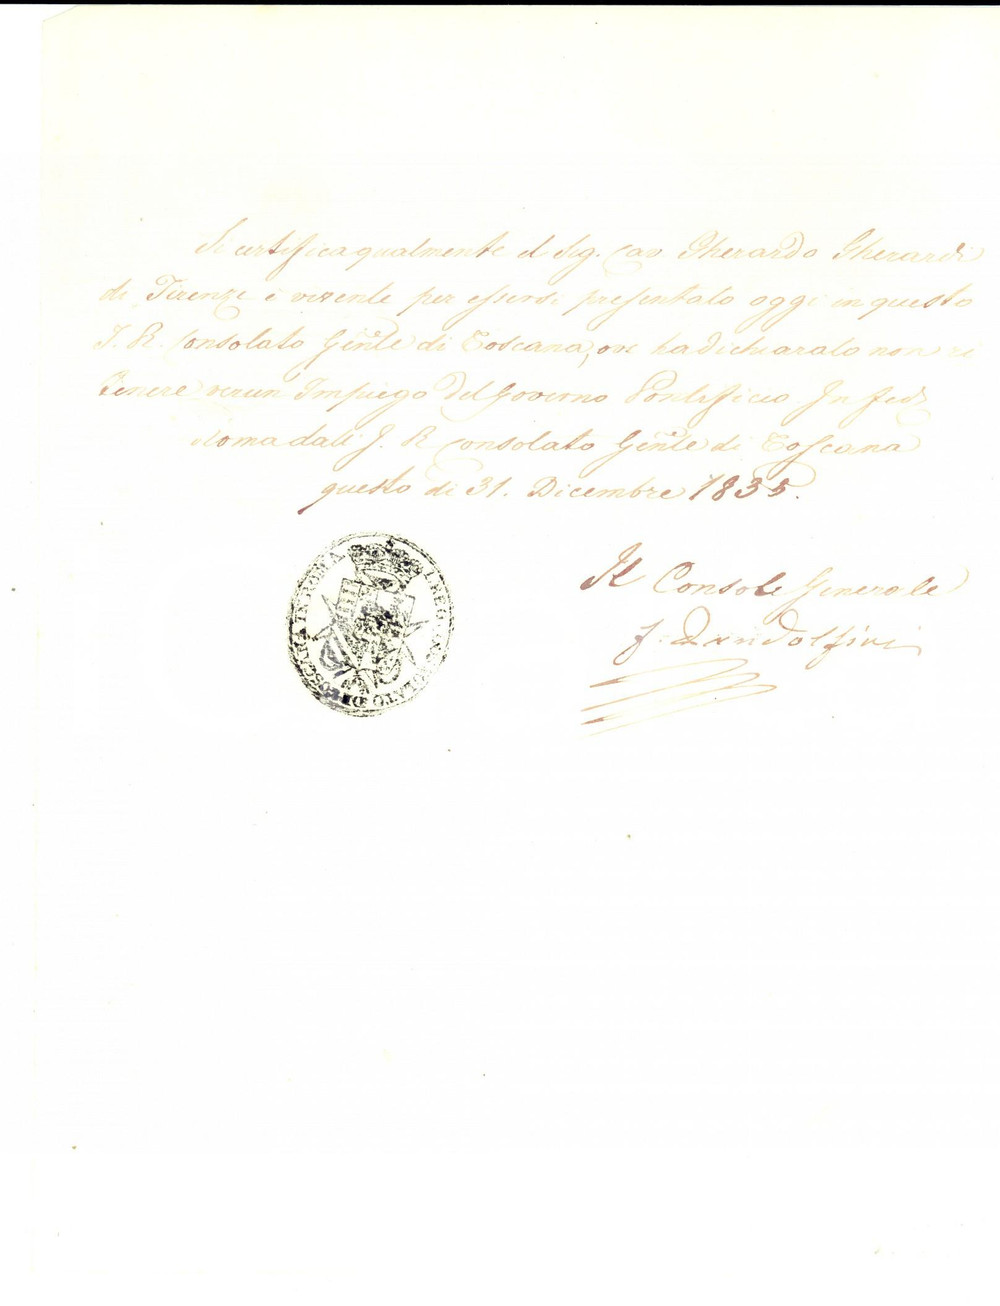 Si certifica qualmente il Sig. Cav Gherardo Gherardi
di Firenze è vivente per essersi presentato oggi in questo
I. R. Consolato Genle di Toscana, ove ha dichiarato non ri
tenere verun Impiego del Governo Pontificio In fede
Roma dall I. R. Consolato Genle di Toscana
questo di 31. Dicembre 1835.
Il Console Generale
DI TOSCANA IN ROMA